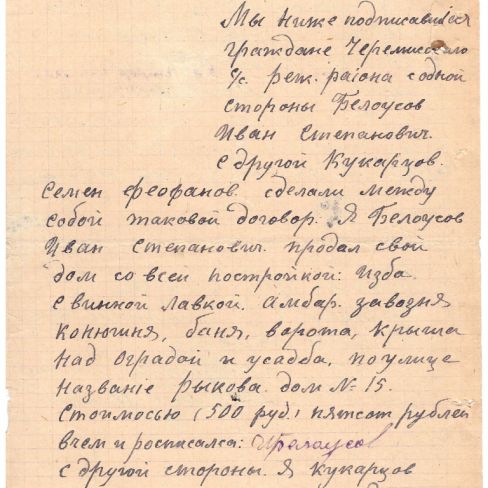 Мы ниже подписавшіеся
граждане Черемисского
с/с. реж. раіона с одной
стороны Белоусов
Иван Степанович.
с другой Кукарцов.
Семен Феофанов. сделали между
собой таковой договор. Я Белоусов
Иван Степанович. продал свой
дом со всей постройкой: изба
с винной лавкой. Амбар. завозня
конюшня, баня, ворота, крыша
над оградой и усадба, по улице
названіе Рыкова. дом № 15.
Стоимосью (500 руб.) пятсот рублей
в чем и росписался: ИБелоусов
с другой стороны. Я Кукарцов